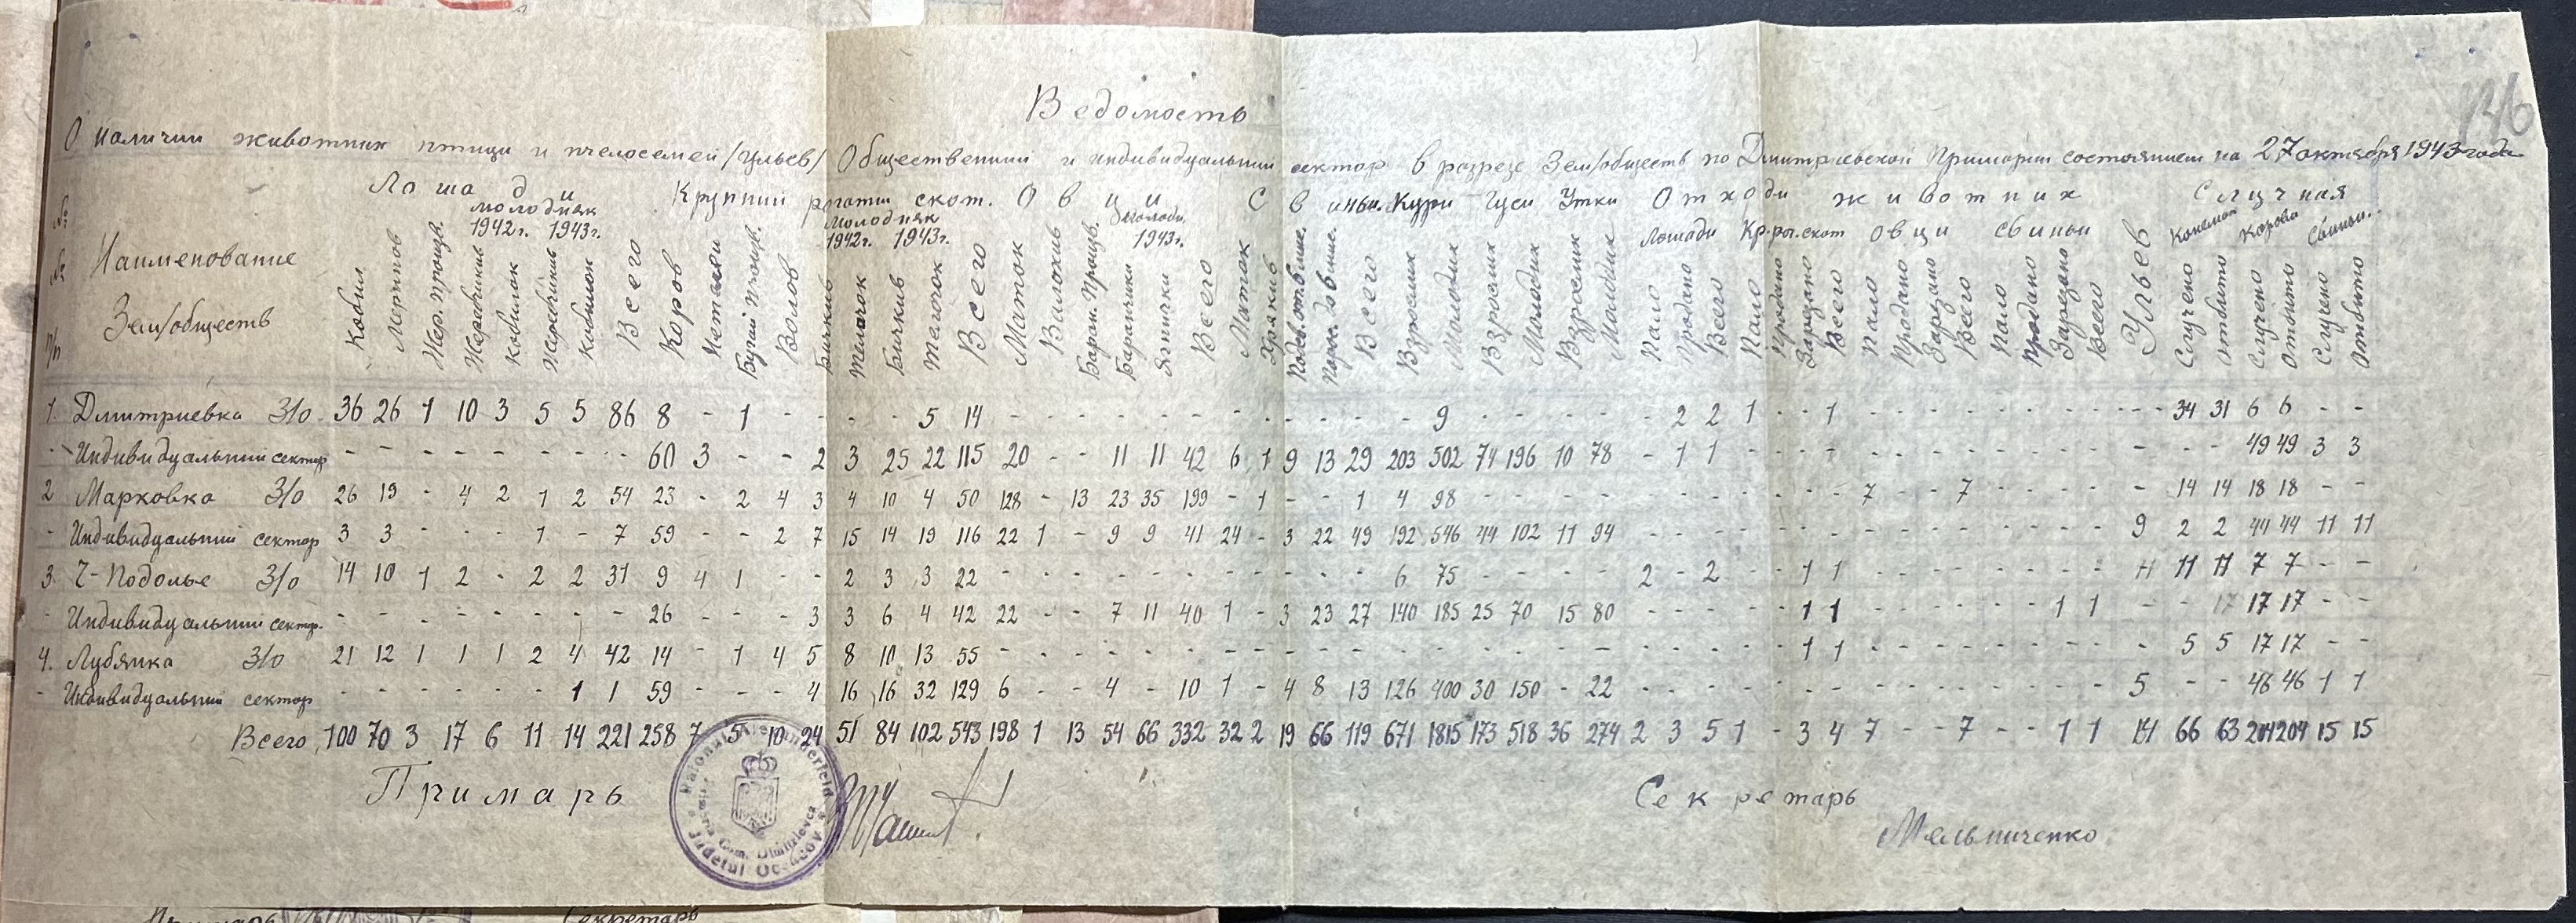 136
Ведомость
О наличии животних птици и пчелосемей /ульев/ Общественний и индивидуальний сектор в разрезе Зем/обществ по Дмитриевской Примарии состоянием на 27 октября 1943 года
№№ п/п
Наименование Зем/обществ
Лошади
молодняк
1942г. 1943г.
Крупний рогатий скот.
молодняк
1942г. 1943г.
Овици
1943г.
Свиньи. Кури Гуси Утки
Отходи животних
Лошади Кр.рог.скот овци свиньи
Случная
Корова
Свиньи..
Кобил
Меринов
Жер. Произв.
Жеребчиків
Кобилок
Жеребчиків
Кобилок
Всего
Коров
Нетелей
Бугай Произв.
Волов
Бичків
Теличок
Бичків
Теличок
Всего
Маток
Валохів
Баран. Произв.
Баранчики
Ягнички
Всего
Маток
Хряків
Всего
Взрослих
Молодняк
Взрослих
Молодняк
Взрослих
Молодняк
Пало
Продано
Всего
Пало
Продано
Зарезано
Всего
Пало
Продано
Зарезано
Всего
Пало
Продано
Зарезано
Всего
Ульев
Случено
Отбито
Случено
Отбито
Случено
Отбито
1. Дмитриевка З/о 36 26 1 10 3 5 5 86 8 - 1 - - - - 5 14 - - - - - - - - - - - - 9 - - - - - 2 2 1 - - 1 - - - - - - - - - 34 31 6 6 - -
- Индивидуальний сектор - - - - - - - - 60 3 - - 2 3 25 22 115 20 - - 11 11 42 6 1 9 13 29 203 502 74 196 10 78 - 1 1 - - - - - - - - - - - - - - - 49 49 3 3
2 Марковка З/о 26 19 - 4 2 1 2 54 23 - 2 4 3 4 10 4 50 128 - 13 23 35 199 - 1 - - 1 4 98 - - - - - - - - - - - 7 - - 7 - - - - - 14 14 18 18 - -
- Индивидуальний сектор 3 3 - - - 1 - 7 59 - - 2 7 15 14 19 116 22 1 - 9 9 41 24 - 3 22 49 192 546 44 102 11 94 - - - - - - - - - - - - - - - 9 2 2 44 44 11 11
3. Ч-Подолье З/о 14 10 1 2 - 2 2 31 9 4 1 - - 2 3 3 22 - - - - - - - - - - - 6 75 - - - - 2 - 2 - - 1 1 - - - - - - - - 11 11 7 7 - -
- Индивидуальний сектор. - - - - - - - - 26 - - - 3 3 6 4 42 22 - - 7 11 40 1 - 3 23 27 140 185 25 70 15 80 - - - - - 1 1 - - - - - - 1 1 - - 17 17 17 - -
4. Лубянка З/о 21 12 1 1 1 2 4 42 14 - 1 4 5 8 10 13 55 - - - - - - - - - - - - - - - - - - - - - - 1 1 - - - - - - - - - 5 5 17 17 - -
- Индивидуальний сектор - - - - - - 1 1 59 - - - 4 16 16 32 129 6 - - 4 - 10 1 - 4 8 13 126 400 30 150 - 22 - - - - - - - - - - - - - - - 5 - - 46 46 1 1
Всего 100 70 3 17 6 11 14 221 258 7 5 10 24 51 84 102 543 198 1 13 54 66 332 32 2 19 66 119 671 1815 173 518 36 274 2 3 5 1 - 3 4 7 - - 7 - - 1 1 14 66 63 204 204 15 15
Примарь
Секретарь
Мельниченко
Com. Dimitrievca
Judetul Oceacov
Примарь
Секретарь